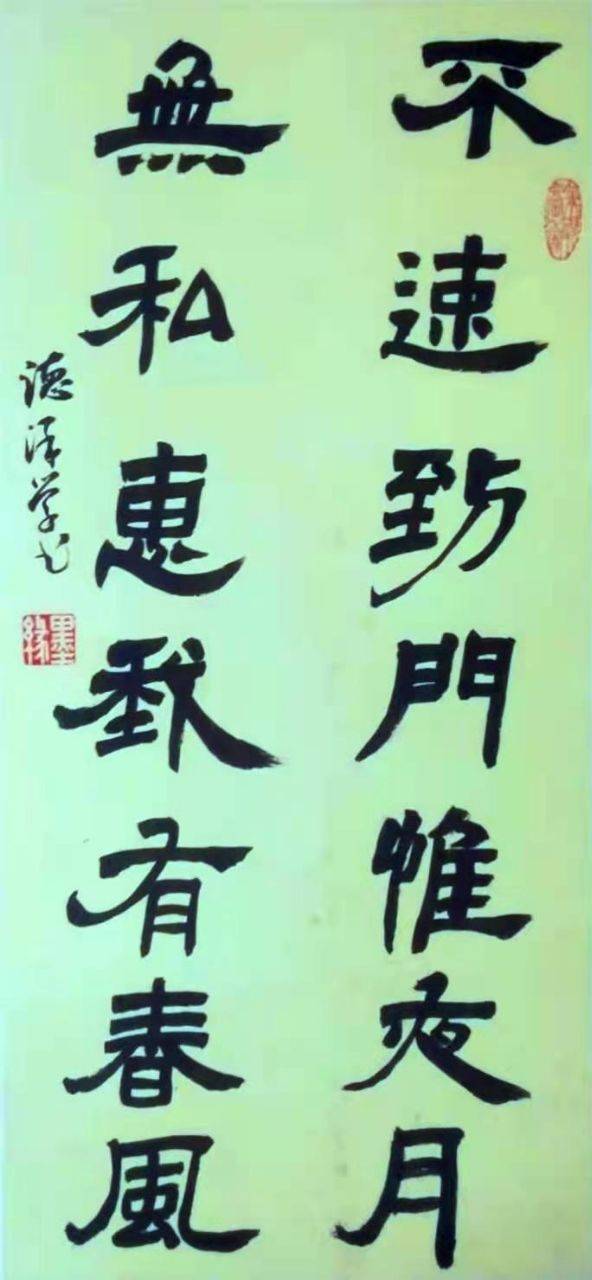 不速到門惟夜月
無私惠我有春風
德泽学书
墨緣